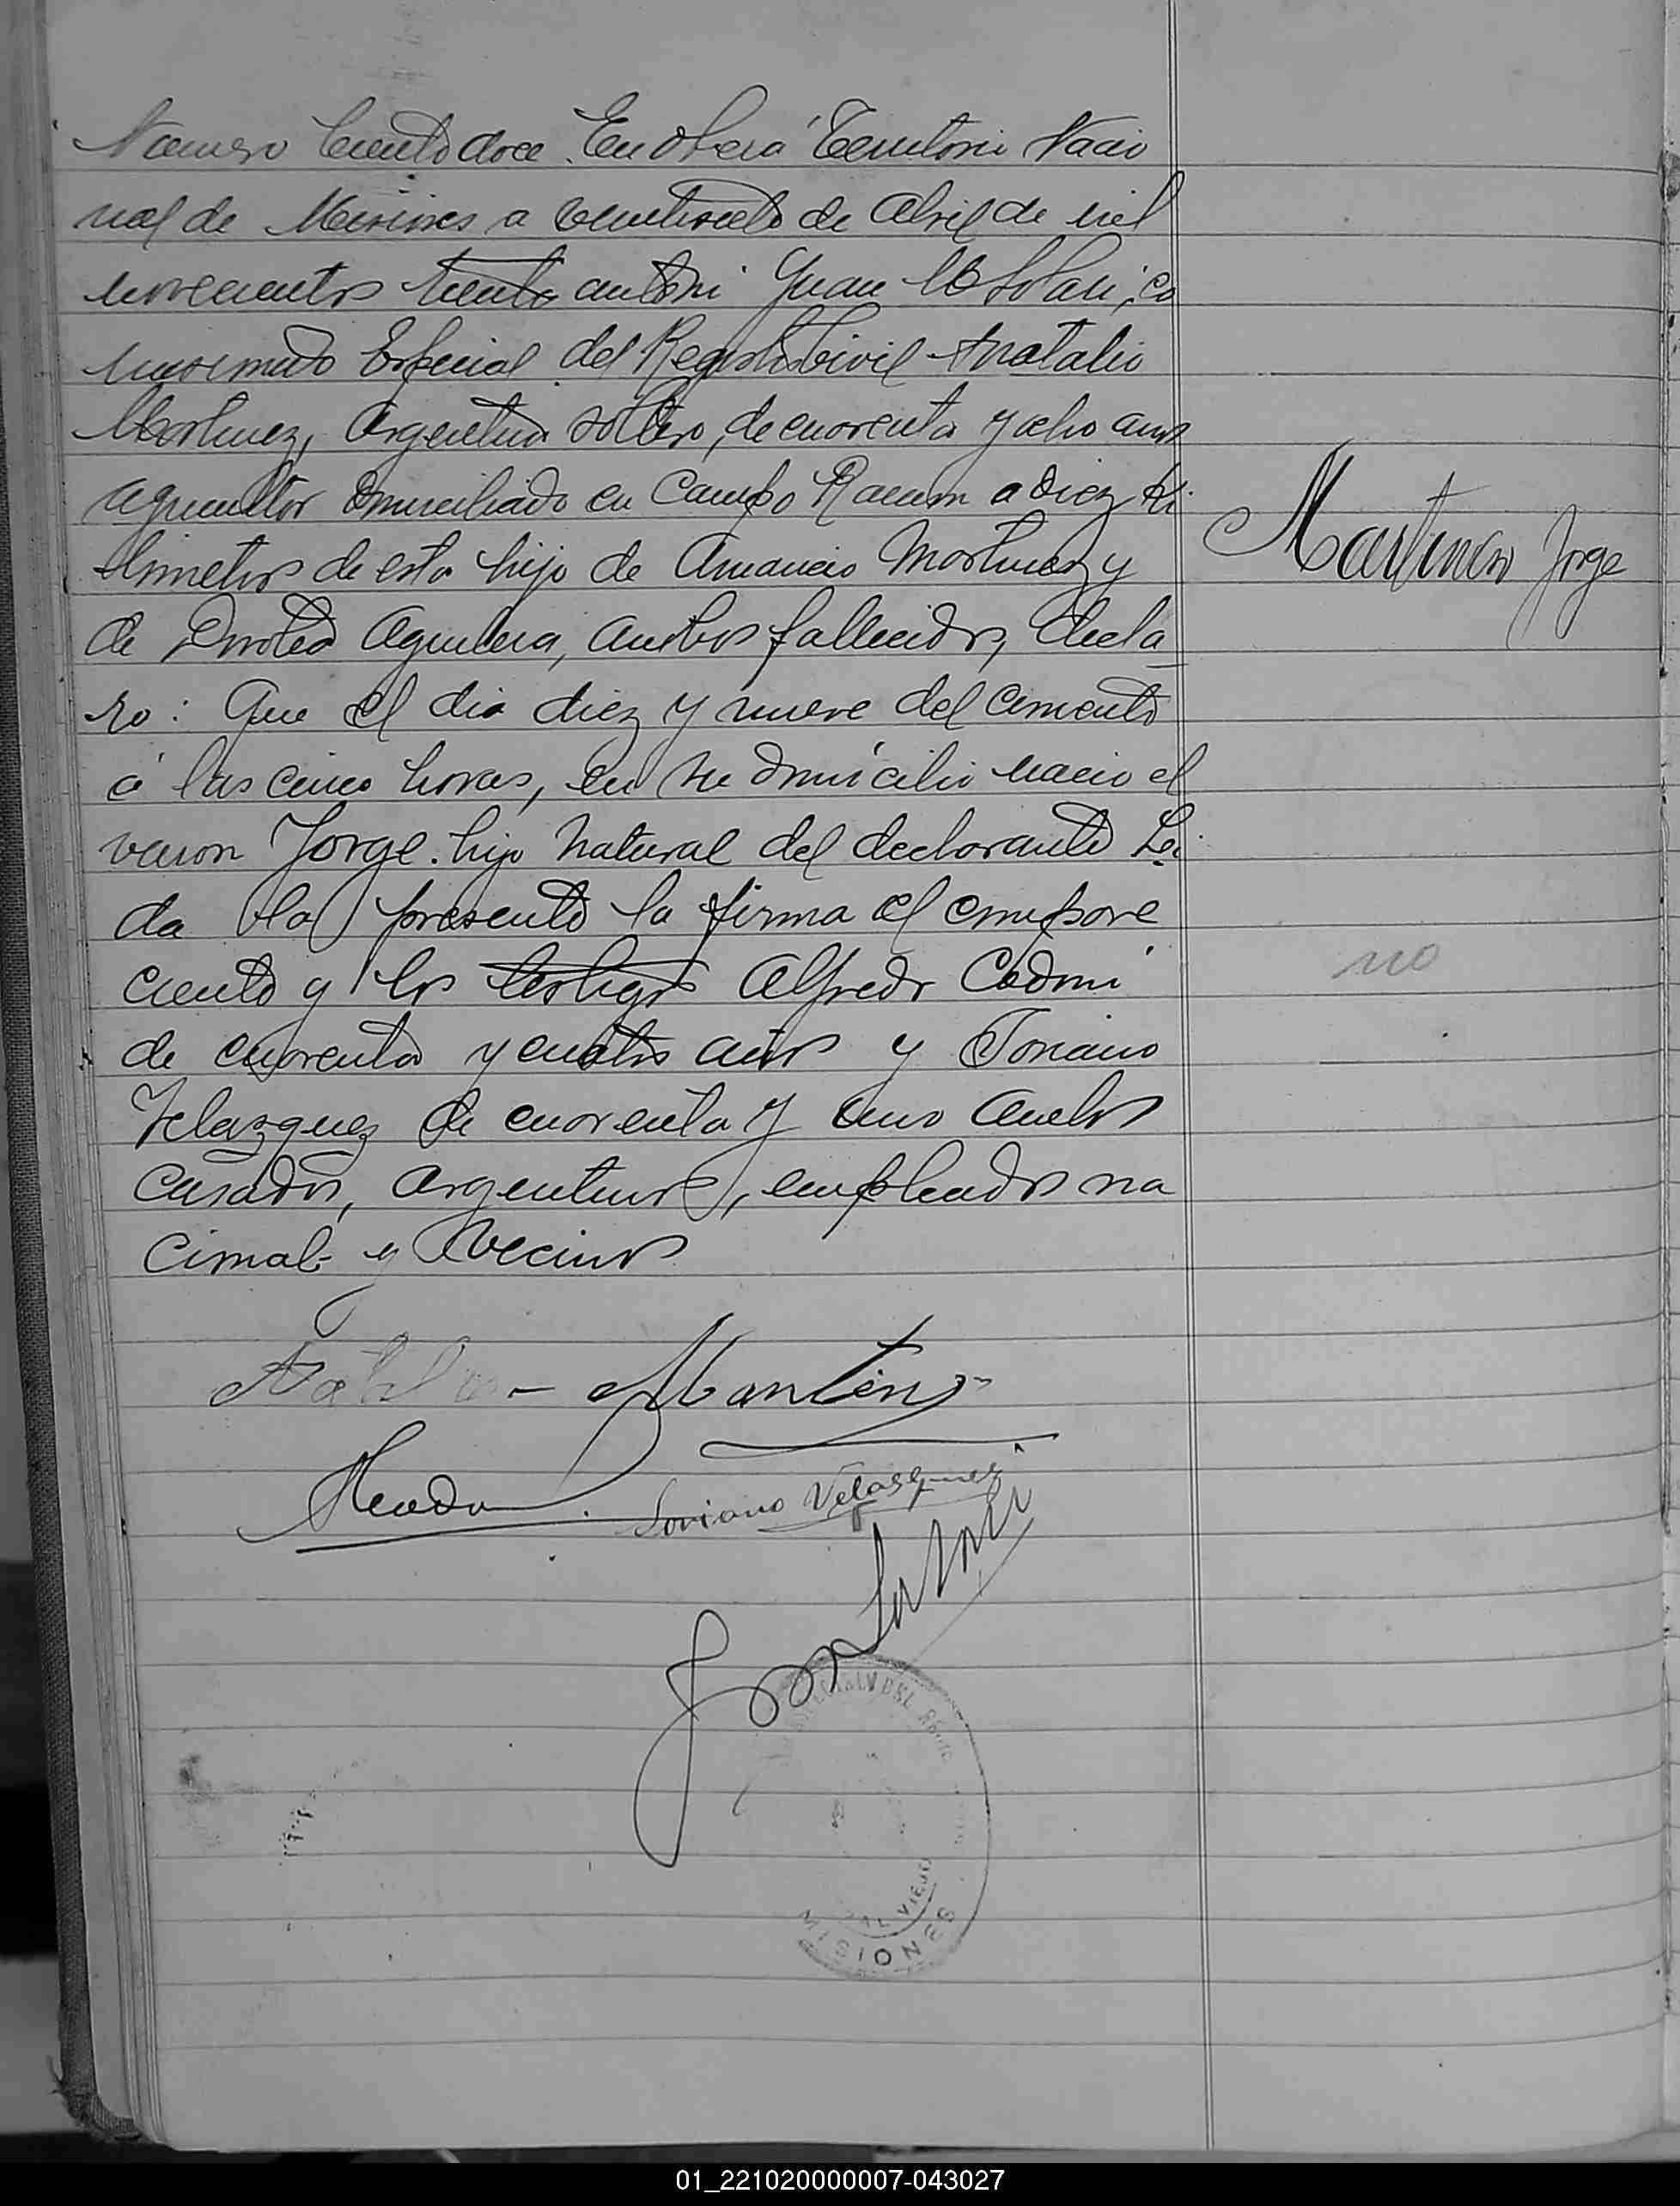 Numero Ciento doce. En Oberá Territorio Nacio
nal de Misiones a veintisiete de Abril de mil
novecientos treinta ante mi Juan Solari, Co
misionado Especial del Registro Civil Anatalio
Martinez, Argentino soltero, de cuarenta y ocho años
agricultor domiciliado en Campo Ramon a diez Ki
lometros de esta hijo de Amancio Martinez y
de Dorotea Aguilera, ambos fallecidos, decla
ro: Que el dia diez y nueve del corriente
á las cinco horas, en su domicilio nacio el
varon Jorge. hijo natural del declarante Lei
da la presente la firma el compare
ciente y los testigos Alfredo
de cuarenta y cuatro años y Soriano
Velazquez de cuarenta y uno ambos
casados, argentinos, empleados na
cional y vecinos
Martinez Jorge
no
Martinez
Soriano Velasquez
Juan Solari
MISIONES
01_221020000007-043027